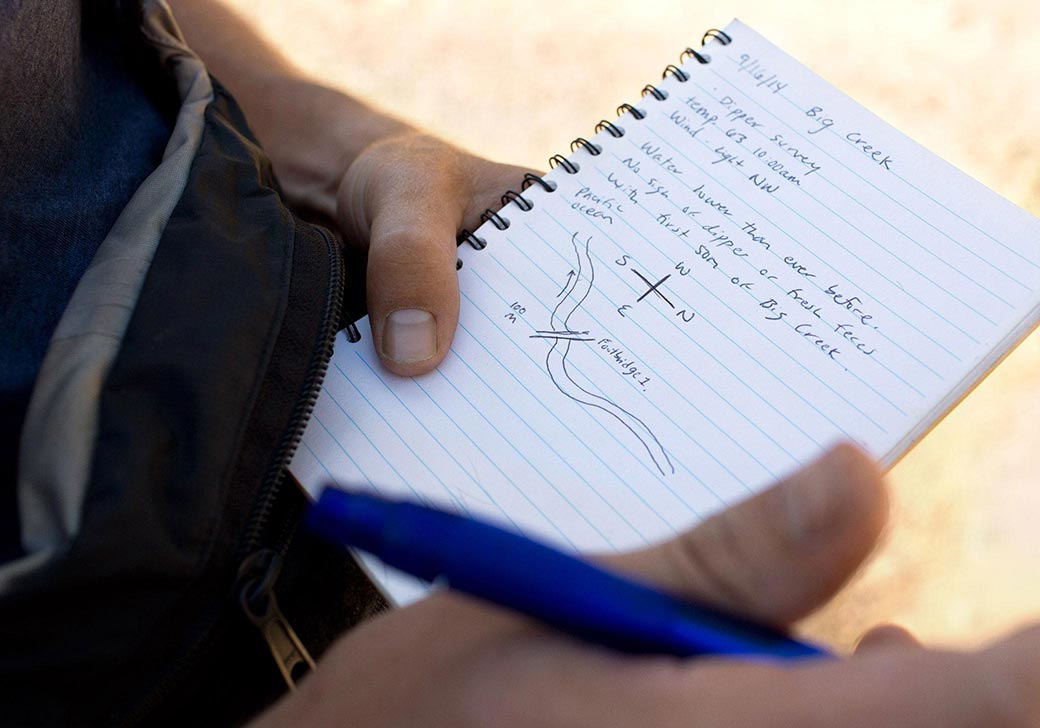 9/16/14 Big Creek
· Dipper survey
temp. 63 10:00am
Wind - light NW
Water lower than ever before.
No sign of dipper or fresh feces
with first 50m of Big Creek.
Pacific
ocean
S W
E N
100
M
Footbridge 1.